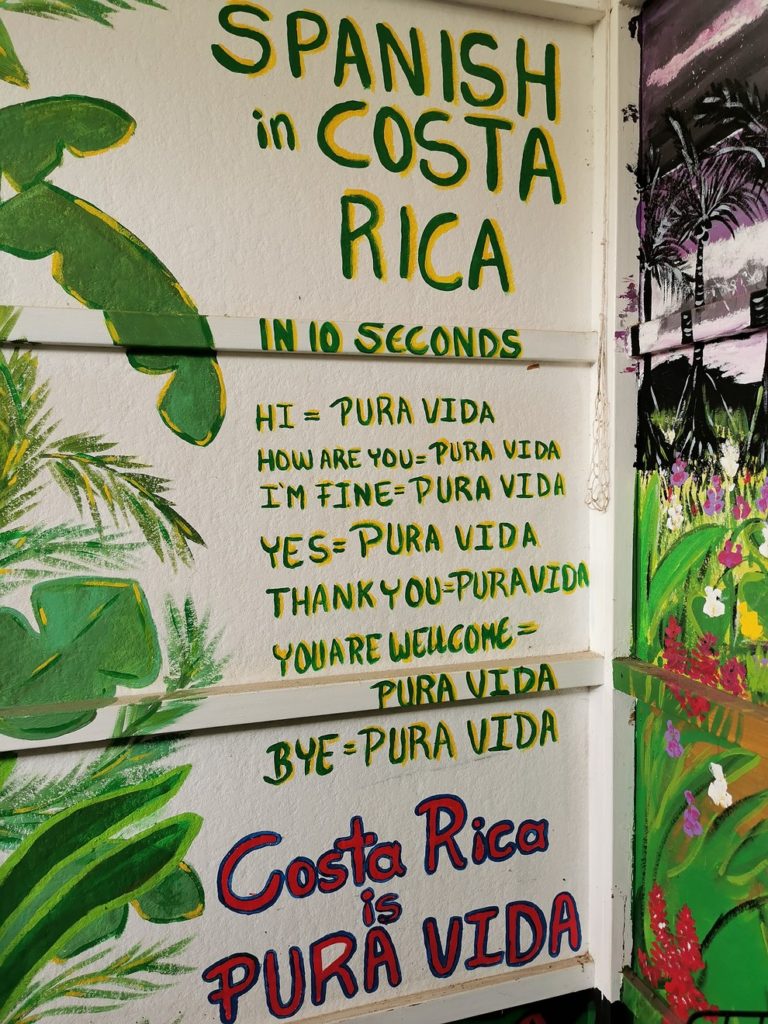 SPANISH
in COSTA
RICA
IN 10 SECONDS
HI = PURA VIDA
HOW ARE YOU = PURA VIDA
I'M FINE = PURA VIDA
YES = PURA VIDA
THANK YOU = PURA VIDA
YOU ARE WELLCOME =
PURA VIDA
BYE = PURA VIDA
Costa Rica
is
PURA VIDA